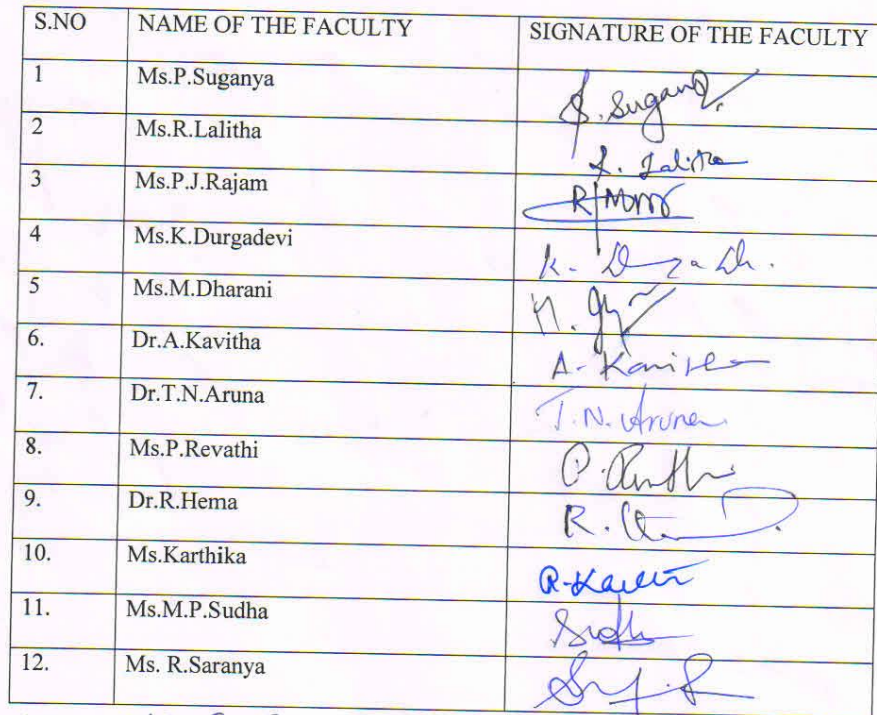 S.NO NAME OF THE FACULTY SIGNATURE OF THE FACULTY
1 Ms.P.Suganya
2 Ms.R.Lalitha R. Lalitha
3 Ms.P.J.Rajam
4 Ms.K.Durgadevi K.
5 Ms.M.Dharani M.
6. Dr.A.Kavitha A. Kavitha
7. Dr.T.N.Aruna T.N. Aruna
8. Ms.P.Revathi P.
9. Dr.R.Hema R.
10. Ms.Karthika
11. Ms.M.P.Sudha Sudha
12. Ms. R.Saranya